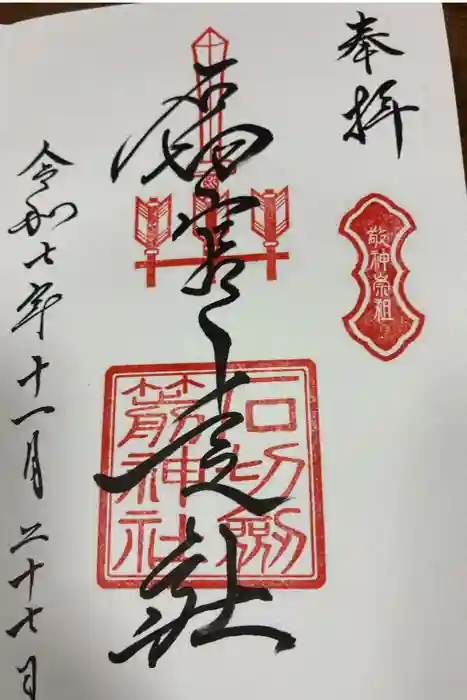 奉拝
敬神崇祖
石切宮上之社
石切劔
箭神社
令和七年十一月二十七日